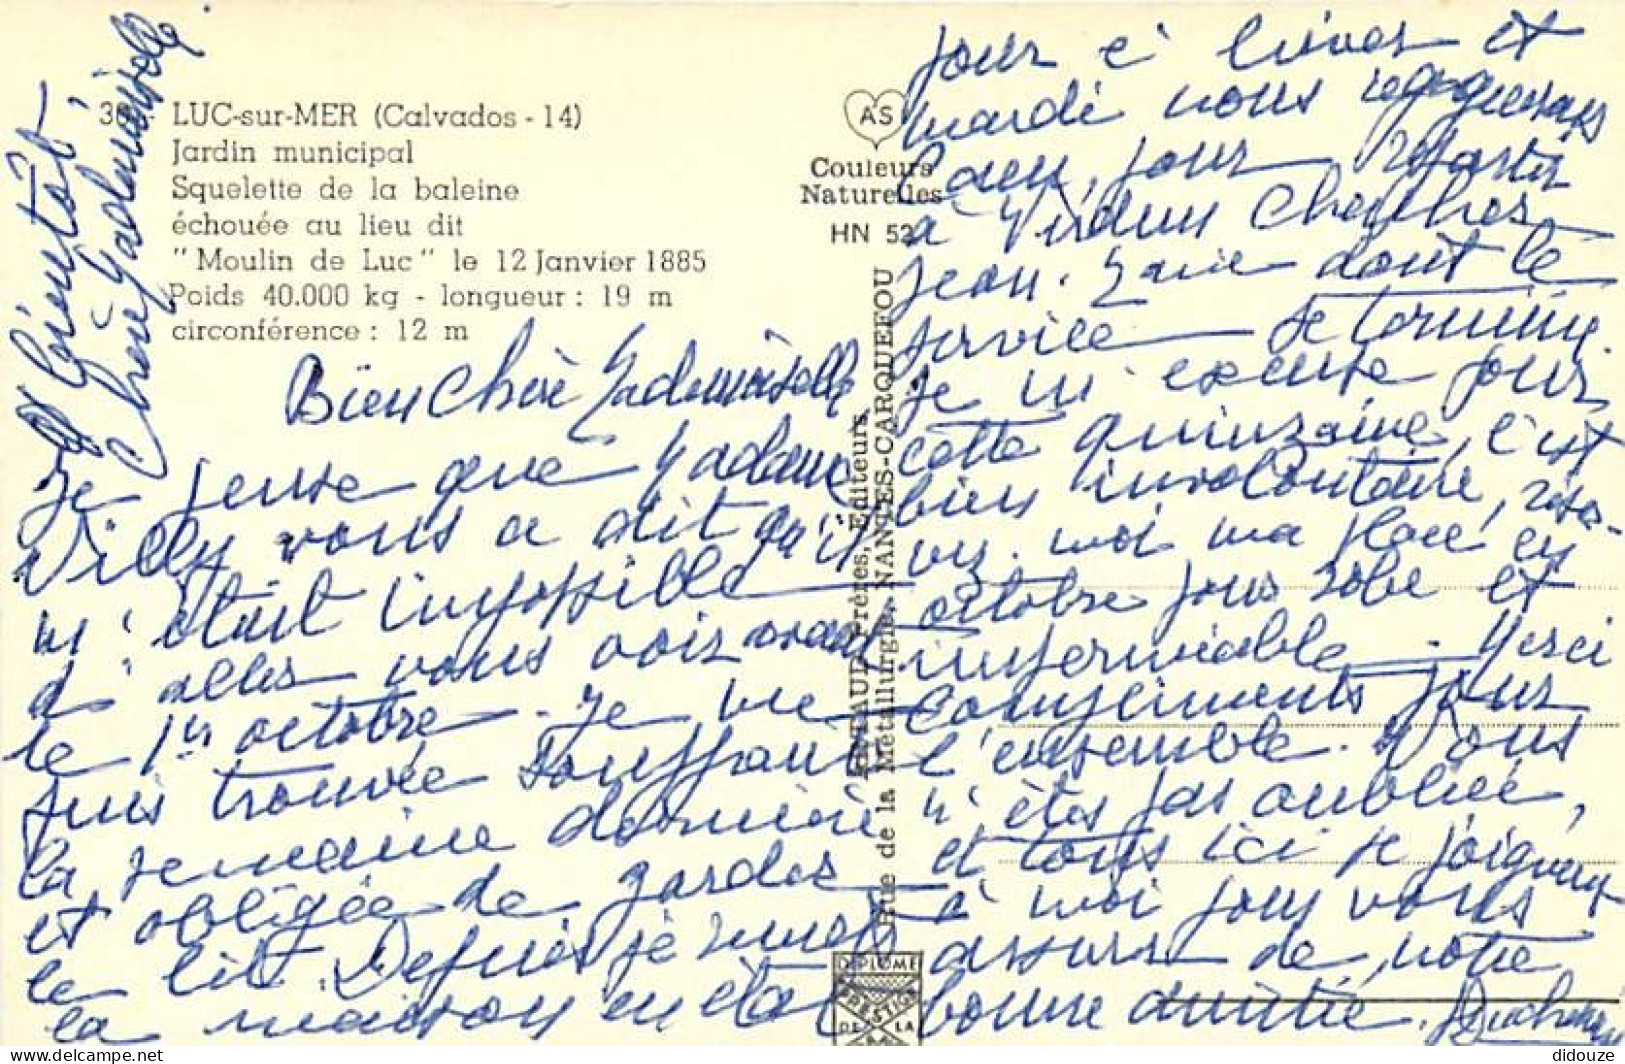 LUC-sur-MER (Calvados - 14)
Jardin municipal
Squelette de la baleine
échouée au lieu dit
"Moulin de Luc" le 12 Janvier 1885
Poids 40.000 kg - longueur : 19 m
circonférence : 12 m
AS
Couleurs
Naturelles
HN 52
ARTAUD Frères, Editeurs
rue de la Métallurgie, NANTES-CARQUEFOU
Bien Chère Mademoiselle
Je pense que Madame
Willy vous a dit qu'il
m'était impossible
d'aller vous voir avant
le 1er octobre. Je me
suis trouvée souffrante
la semaine dernière
et obligée de garder
le lit. Depuis je remets
la maison en état
pour l'hiver et
mardi nous regagnerons
Caen, pour repartir
à Verdun chercher
Jean-Marie dont le
service se termine.
Je m'excuse pour
cette quinzaine, c'est
bien involontaire, réser-
vez-moi ma place en
octobre pour robe et
imperméable - Merci
compliments pour
l'ensemble. Vous
n'êtes pas oubliée,
et tous ici se joignent
à moi pour vous
assurer de notre
bonne amitié.
A bientôt
Chère Mademoiselle
DIPLOME
PRESTIGE
DE LA
didouze